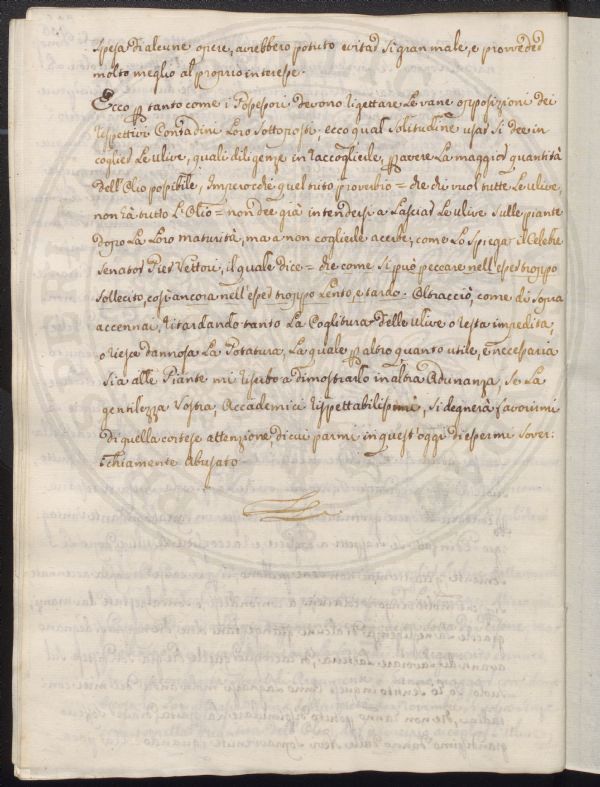 spesa di alcune opere, avrebbero potuto evitar si gran male, e provveder
molto meglio al proprio interesse.
Ecco p tanto come i Possessori devono rigettare le vane opposizioni dei
rispettivi Contadini loro sottoposti, ecco qual solitudine usar si dee in
coglier le ulive, quali diligenze in raccoglierle, p avere la maggior quantità
dell'Olio possibile, Imperocchè quel trito proverbio = che chi vuol tutte le ulive,
non rà tutto l'Olio = non dee già intendersi a lasciar le ulive sulle piante
dopo la loro maturità, ma a non coglierle acerbe, come lo spiega il Celebre
Senator Pier Vettori, il quale dice = che come si può peccare nell'esser troppo
sollecito, così ancora nell'esser troppo lento, e tardo. Oltracciò, come di sopra
accennai, ritardando tanto la Coglitura delle ulive o resta impedita,
o riesce dannosa la Potatura, la quale p altro quanto utile, e necessaria
sia alle Piante mi riserbo a dimostrarlo in altra Adunanza, se la
gentilezza Vostra, Accademici rispettabilissimi, si degnerà favorirmi
di quella cortese attenzione di cui parmi in quest'oggi di essermi sover:
chiamente abusato.